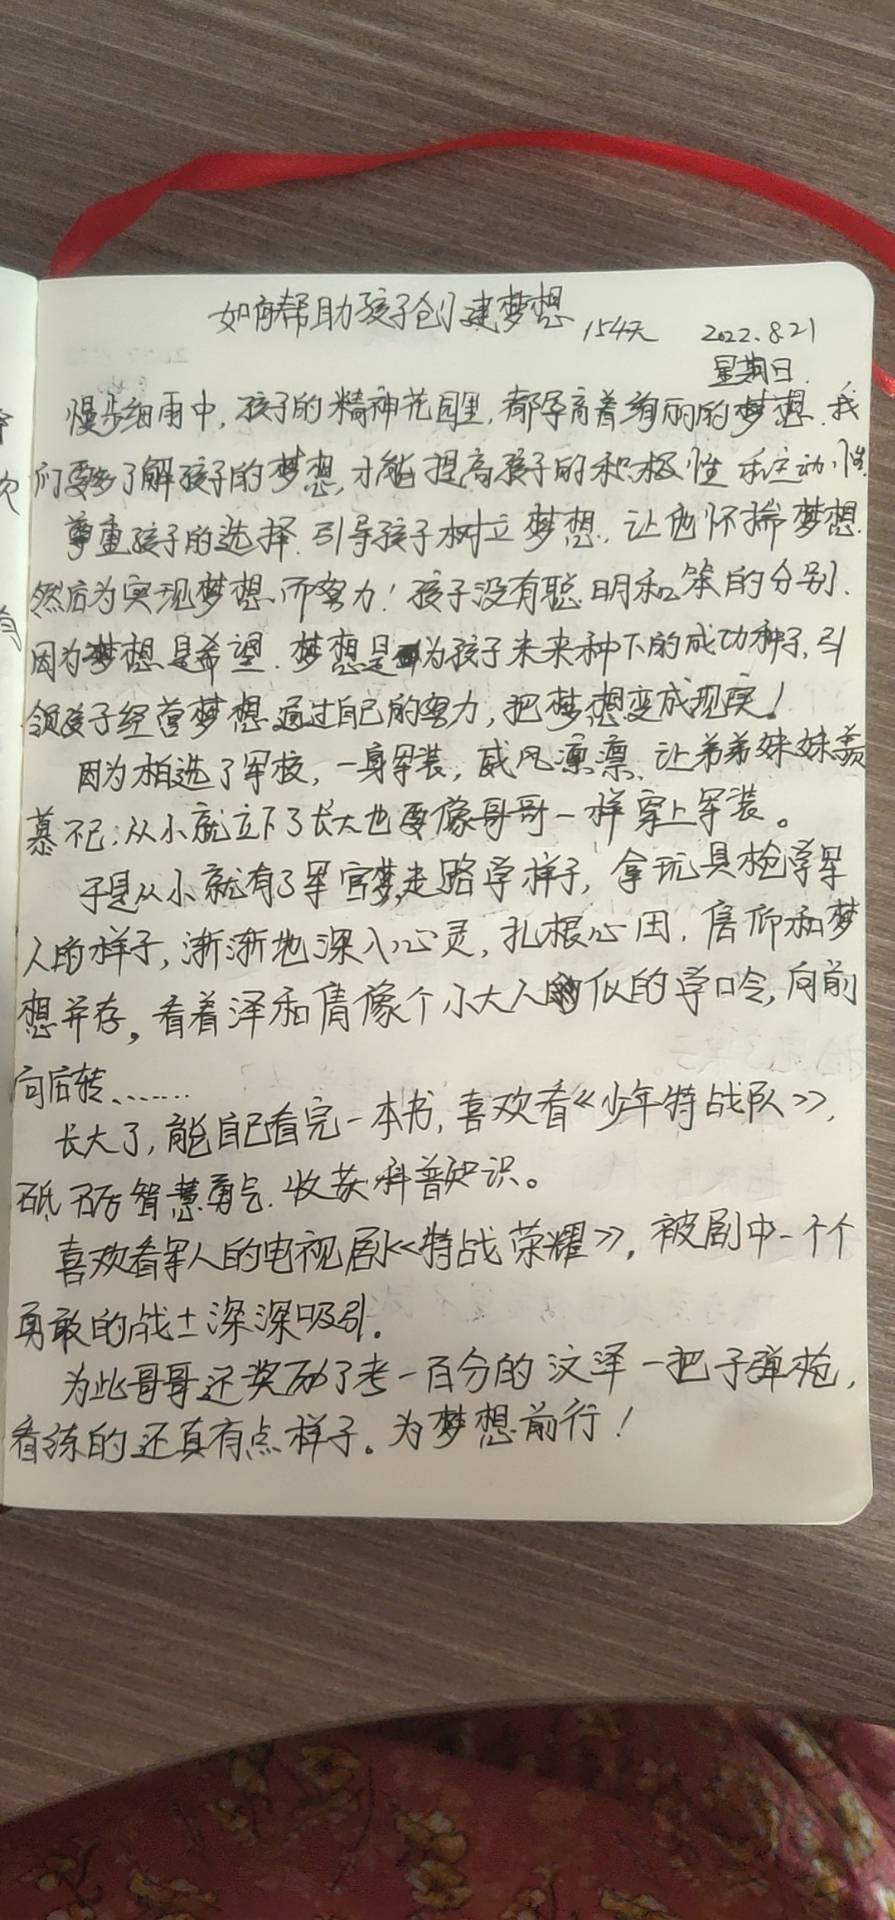 如何帮助孩子创建梦想 154天 2022.8.21
星期日.
慢步细雨中,孩子的精神花园里,都孕育着绚丽的梦想.我
们要多了解孩子的梦想,才能提高孩子的积极性和运动性.
尊重孩子的选择.引导孩子树立梦想.让他怀揣梦想.
然后为实现梦想而努力!孩子没有聪明和笨的分别.
因为梦想是希望.梦想是为孩子未来种下的成功种子,引
领孩子经营梦想.通过自己的努力,把梦想变成现实!
因为柏选了军校,一身军装,威风凛凛.让弟弟妹妹羡
慕不已;从小就立下了长大也要像哥哥一样穿上军装。
于是从小就有了军官梦,走路学样子,拿玩具枪学军
人的样子,渐渐地深入心灵,扎根心田.信仰和梦
想并存。看着泽和倩像个小大人似的学口令,向前
向后转.......
长大了,能自己看完一本书,喜欢看《少年特战队》,
砥砺智慧勇气.收获科普知识。
喜欢看军人的电视剧《特战荣耀》,被剧中一个个
勇敢的战士深深吸引.
为此哥哥还奖励了考一百分的汶泽一把子弹枪,
看练的还真有点样子。为梦想前行!